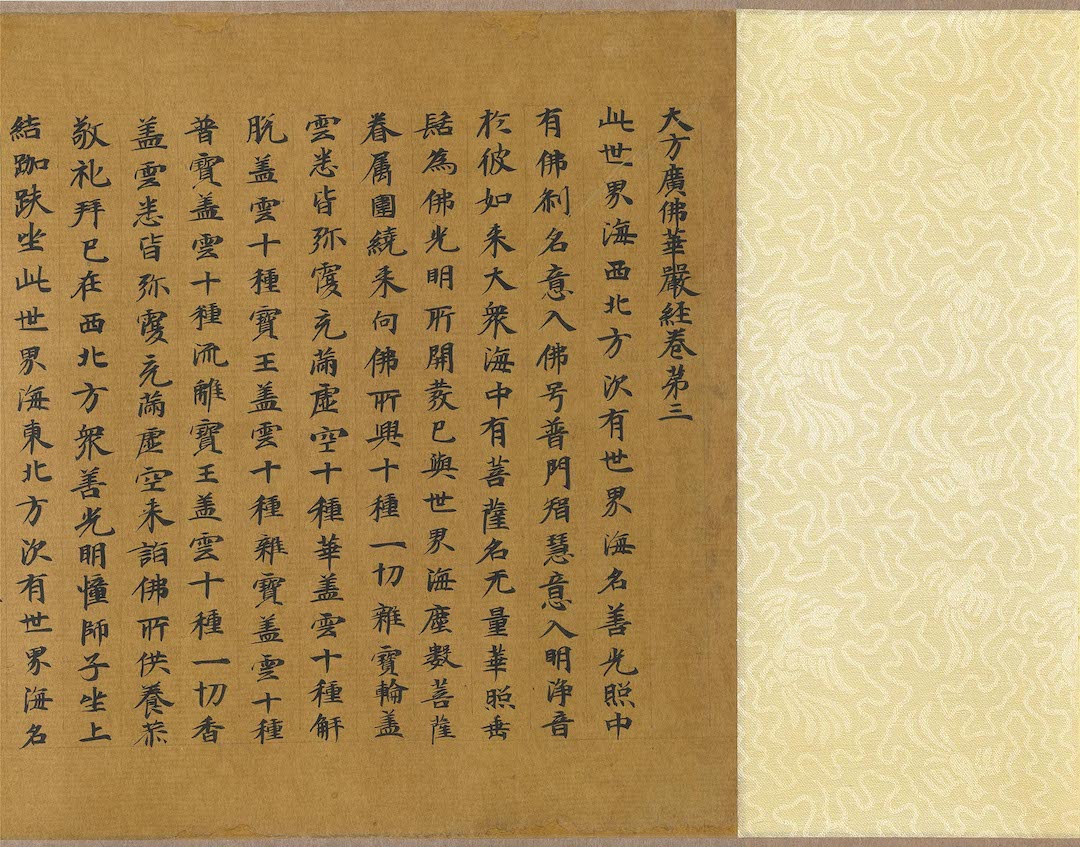 大方廣佛華嚴經卷第三
此世界海西北方次有世界海名善光照中
有佛刹名意入佛号普門智慧意入明淨音
於彼如来大衆海中有菩薩名无量華照垂
髻為佛光明所開發已與世界海塵數菩薩
眷属圍繞来向佛所興十種一切雜寶輪盖
雲悉皆弥覆充滿虛空十種華盖雲十種解
脱盖雲十種寶王盖雲十種雜寶盖雲十種
普寶盖雲十種流離寶王盖雲十種一切香
盖雲悉皆弥覆充滿虛空来詣佛所供養恭
敬礼拜已在西北方衆善光明憧師子坐上
結跏趺坐此世界海東北方次有世界海名